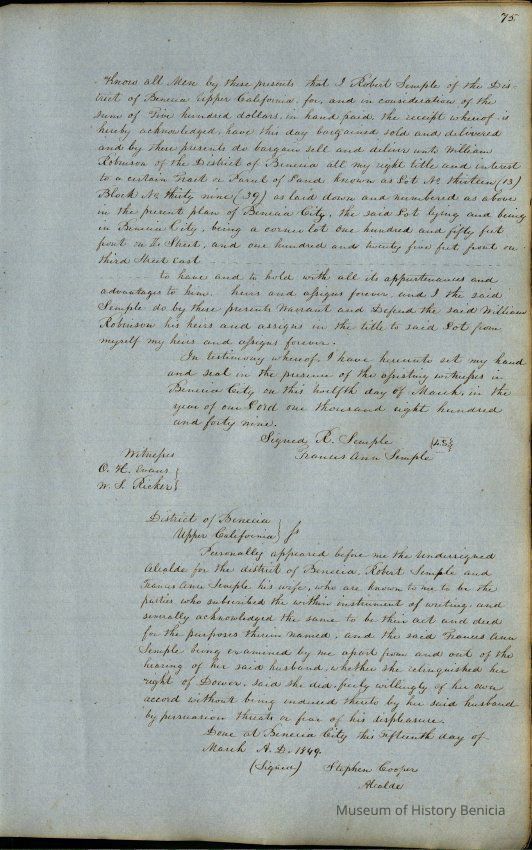 75
Know all Men by these presents that I Robert Semple of the Dis-
trict of Benicia Upper California, for, and in consideration of the
sum of Five hundred dollars, in hand paid, the receipt whereof is
hereby acknowledged, have this day bargained sold and delivered
and by these presents do bargain sell and deliver unto William
Robinson of the District of Benicia all my right title and interest
to a certain Tract or Parcel of Land known as Lot No thirteen (13)
Block No thirty nine (39) as laid down and numbered as above
in the present plan of Benicia City, the said Lot lying and being
in Benicia City, being a corner lot one hundred and fifty feet
front on Street, and one hundred and twenty five feet front on
third Street East
to have and to hold with all its appurtenances and
advantages to him, heirs and assigns forever, and I the said
Semple do by these presents Warrant and Defend the said William
Robinson his heirs and assigns in the title to said Lot from
myself my heirs and assigns forever.
In testimony whereof, I have hereunto set my hand
and seal in the presence of the witnesses in
Benicia City on this twelfth day of March, in the
year of our Lord one thousand eight hundred
and forty nine.
Signed R. Semple (L.S.)
Frances Ann Semple
Witnesses
O. H. Evans
W. S. Ricker
District of Benicia
Upper California
Personally appeared before me the undersigned
Alcalde for the district of Benicia, Robert Semple and
Frances Ann Semple his wife, who are known to me to be the
parties who subscribed the within instrument of writing, and
severally acknowledged the same to be their act and deed
for the purposes therein named, and the said Frances Ann
Semple being examined by me apart from and out of the
hearing of her said husband, whether she relinquished her
right of Dower, said she did, freely willingly of her own
accord without being induced thereto by her said husband
by persuasion threats or fear of his displeasure.
Done at Benicia City this fifteenth day of
March A.D. 1849.
(Signed) Stephen Cooper
Alcalde
Museum of History Benicia